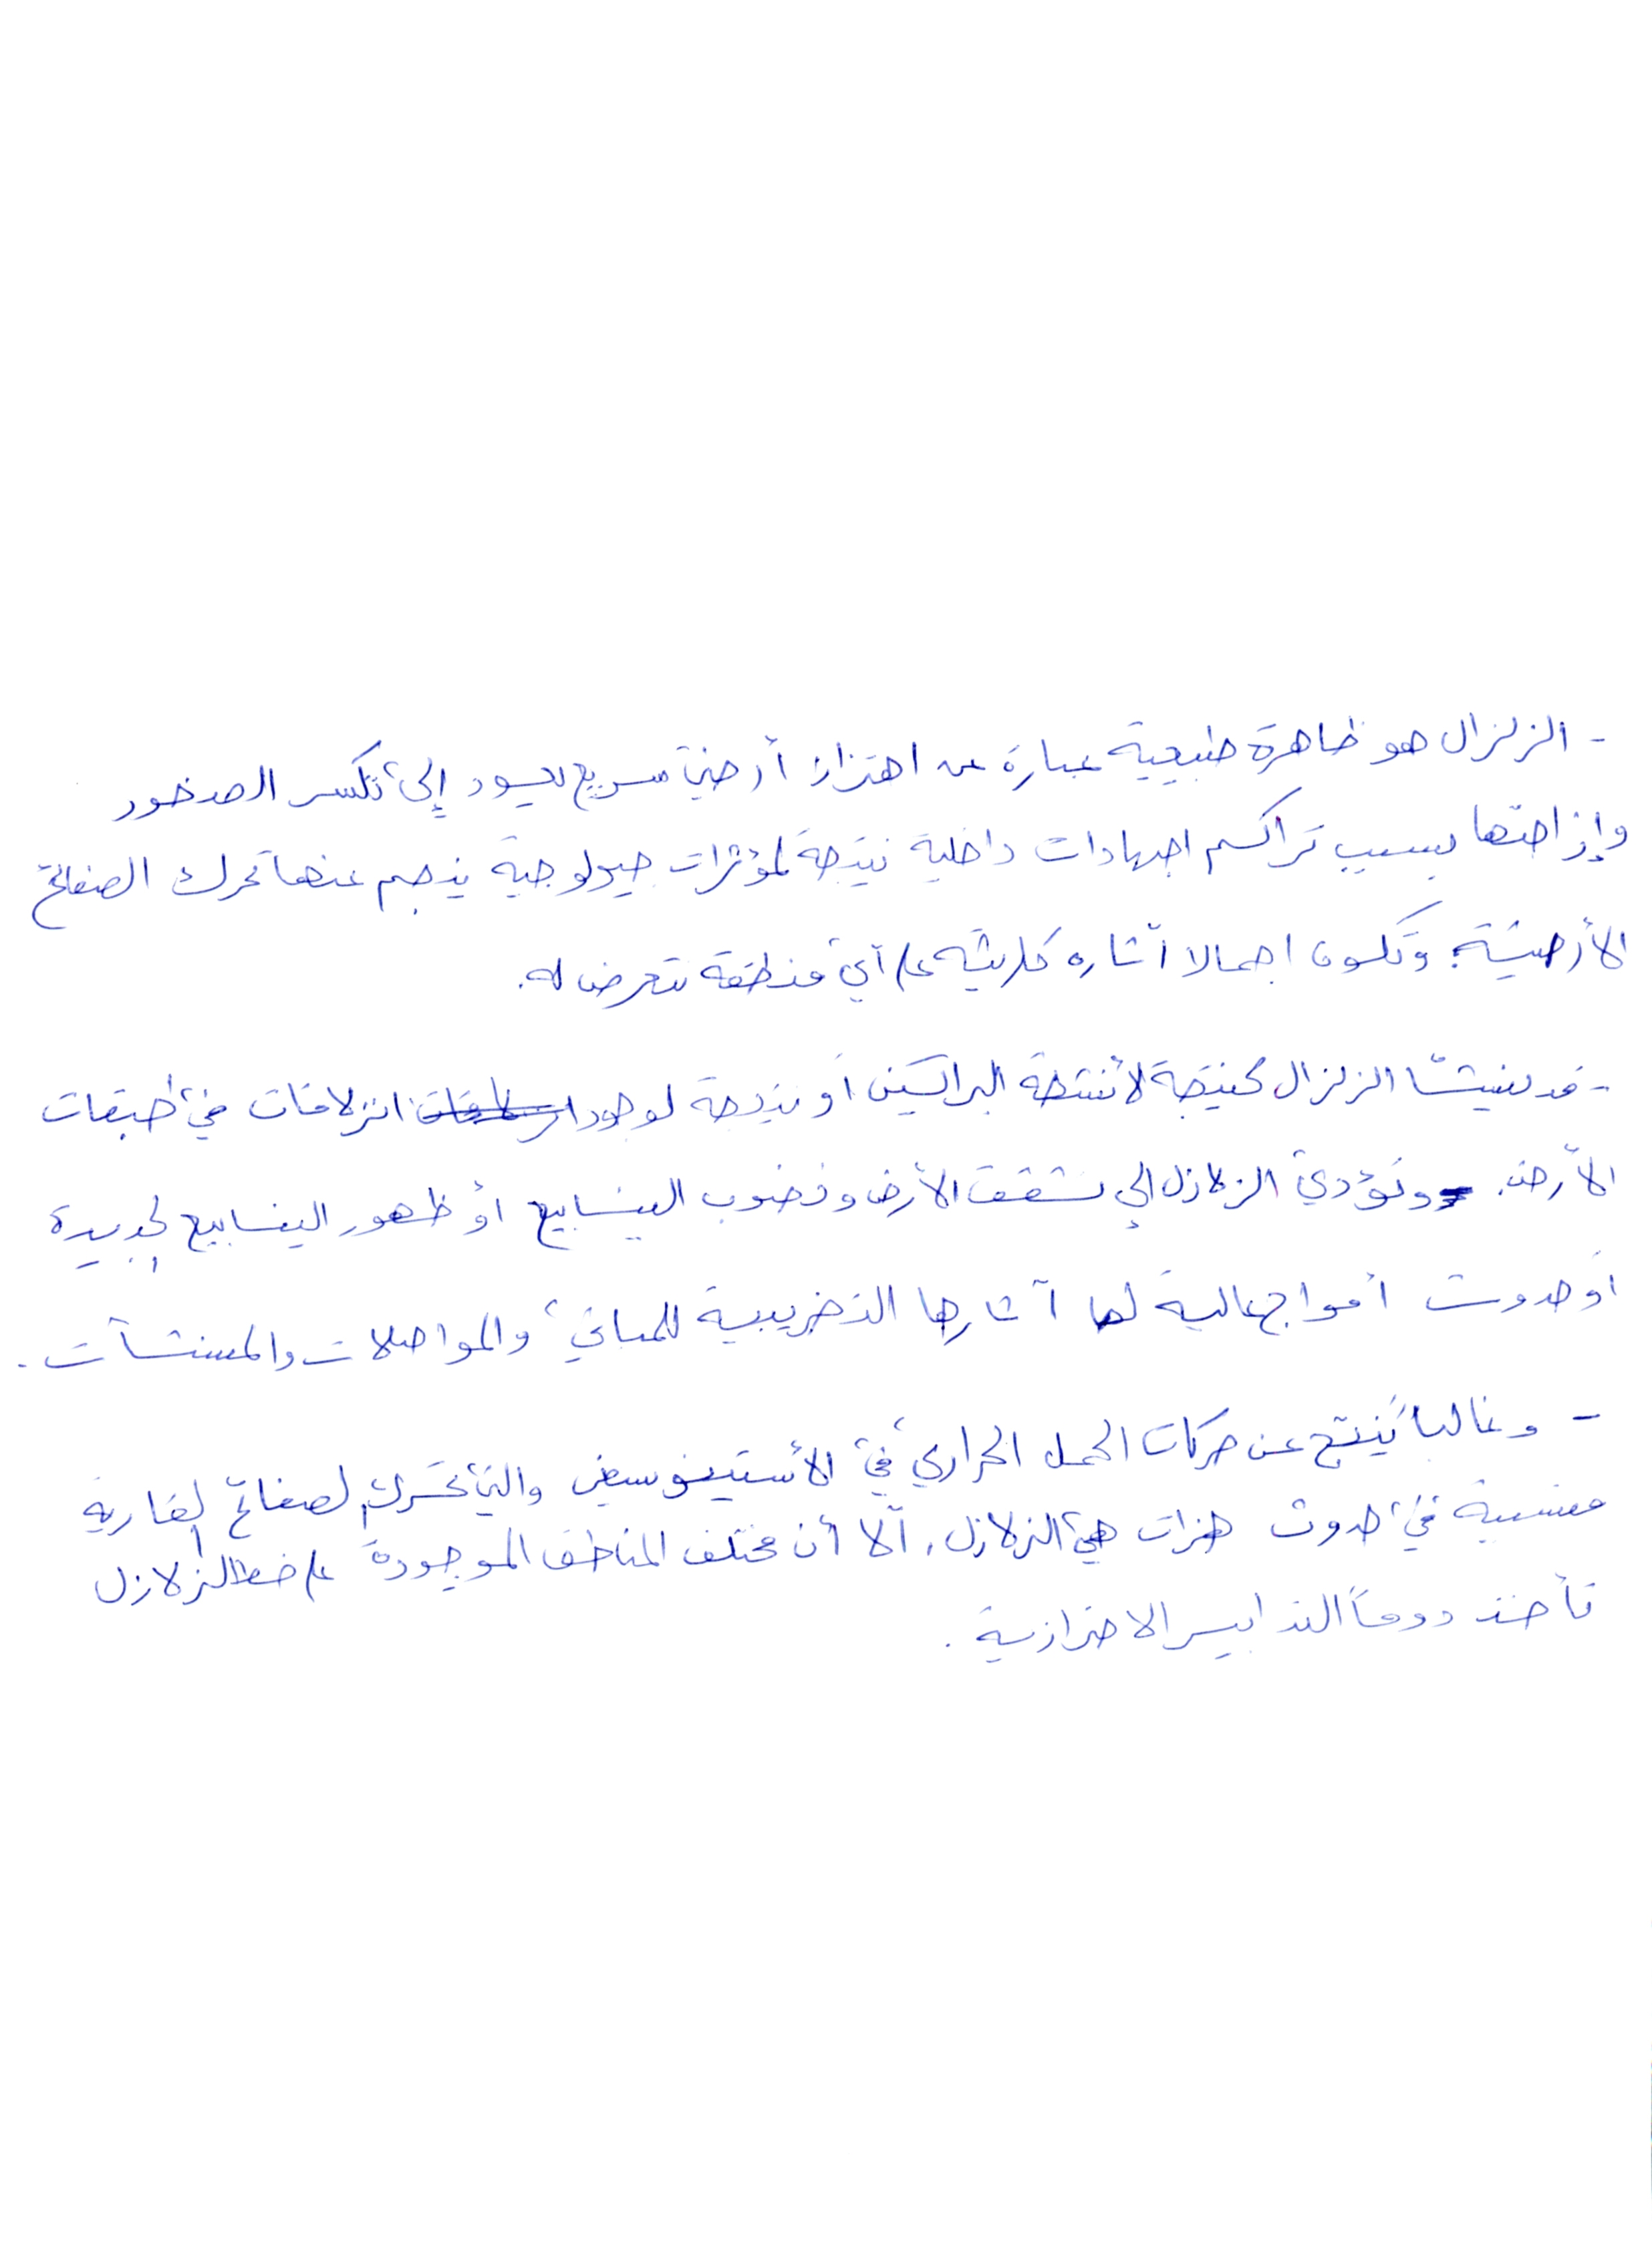 - الزلزال هو ظاهرة طبيعية عبارة عن اهتزاز أرضي سريع يعود إلى تكسر الصخور
وإزاحتها بسبب تراكم اجهادات داخلية نتيجة لمؤثرات جيولوجية ينجم عنها تحرك الصفائح
الأرضية. وتكون اجمالا آثاره كارثية على أي منطقة تتعرض له.
- قد ينشأ الزلزال كنتيجة لأنشطة البراكين أو نتيجة لوجود انزلاقات في طبقات
الأرض. وتؤدي الزلازل إلى تشقق الأرض ونضوب الينابيع أو ظهور الينابيع الجديدة
أو حدوث أمواج عالية لها آثارها التخريبية للمباني والمواصلات والمنشآت.
- وغالباً ينتج عن حركات الحمل الحراري في الأستينوسفير والتي تحرك الصفائح القارية
مسببة في حدوث هزات هي الزلازل. ألا أن مختلف المناطق الموجودة على خط الزلازل
تأخذ دوماً التدابير الاحترازية.